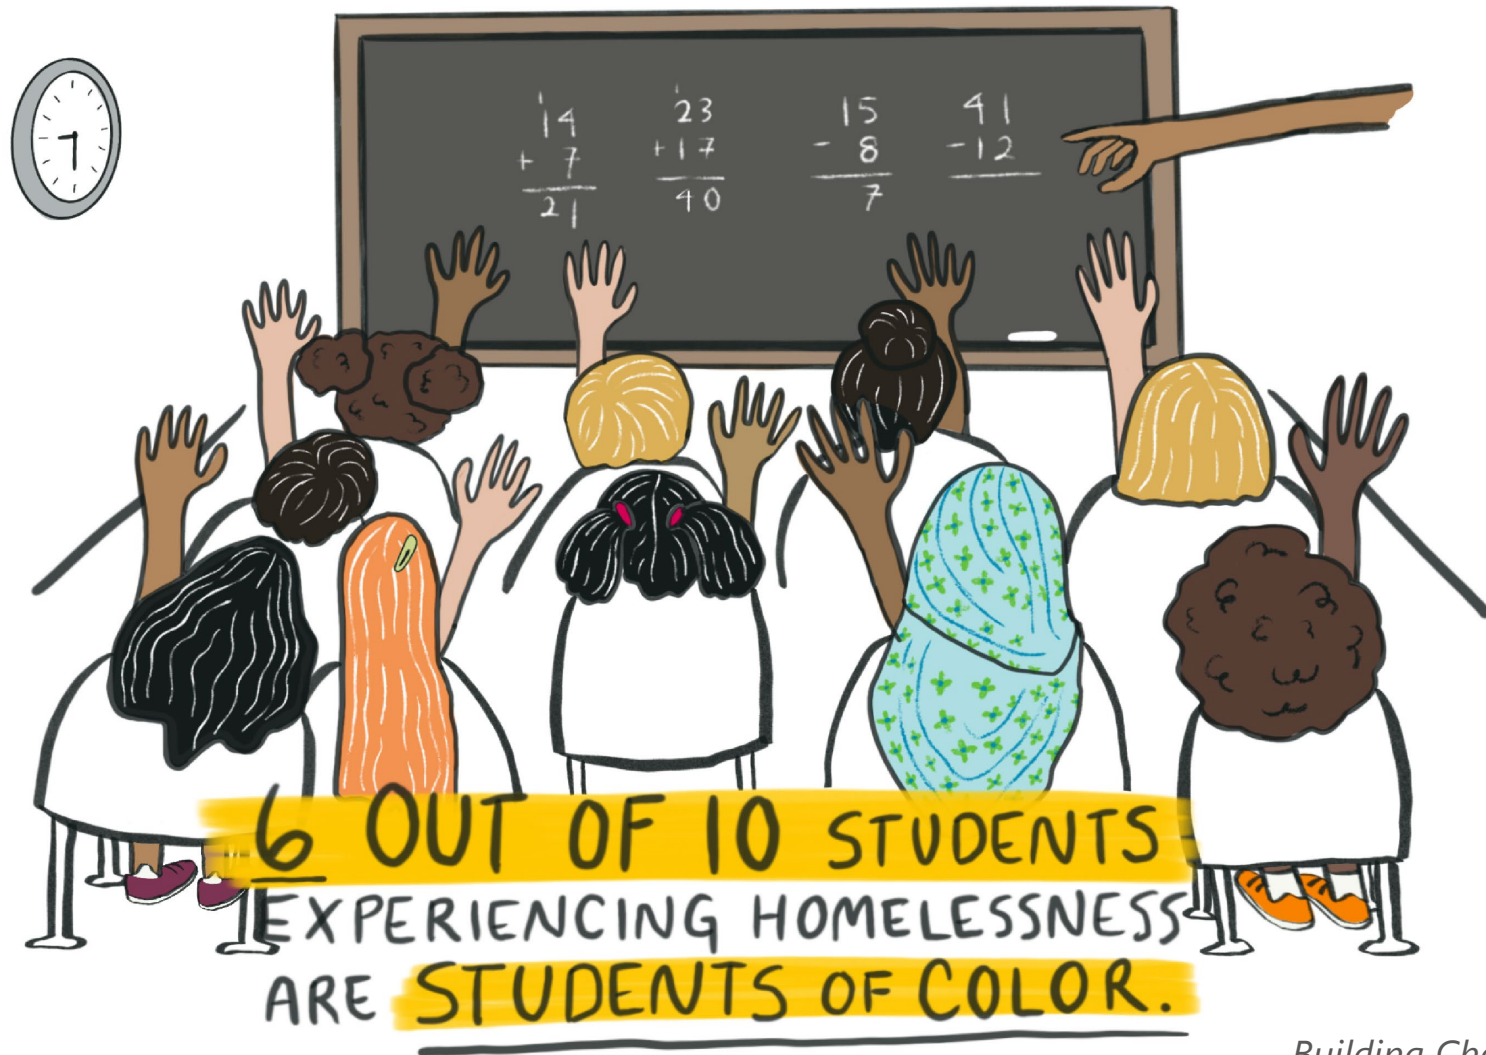 14 + 7 21
23 +17 40
15 - 8 7
41 -12
6 OUT OF 10 STUDENTS
EXPERIENCING HOMELESSNESS
ARE STUDENTS OF COLOR.
Building